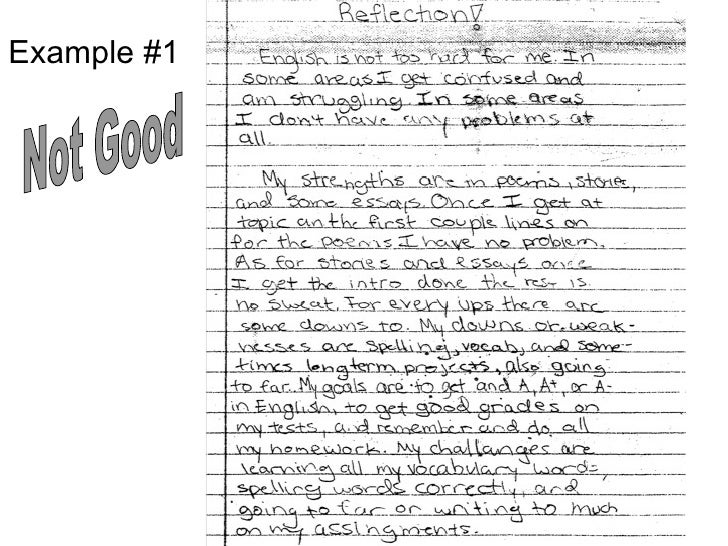 Example #1
Not Good
Reflection!
English is not too hard for me. In
some areas I get confused and
am struggling. In some areas
I don't have any problems at
all.
My strengths are in poems, stories,
and some essays. Once I get at
topic an the first couple lines on
for the poems I have no problem.
As for stories and essays once
I get the intro done the rest is
no sweat. For every ups there are
some downs to. My downs or weak-
nesses are spelling, vocab, and some-
times longterm projects, also going
to far. My goals are to get and A, A+, or A-
in English, to get good grades on
my tests, and remember and do all
my homework. My challanges are
learning all my vocabulary words,
spelling words correctly, and
going to far or writing to much
on my assingments.